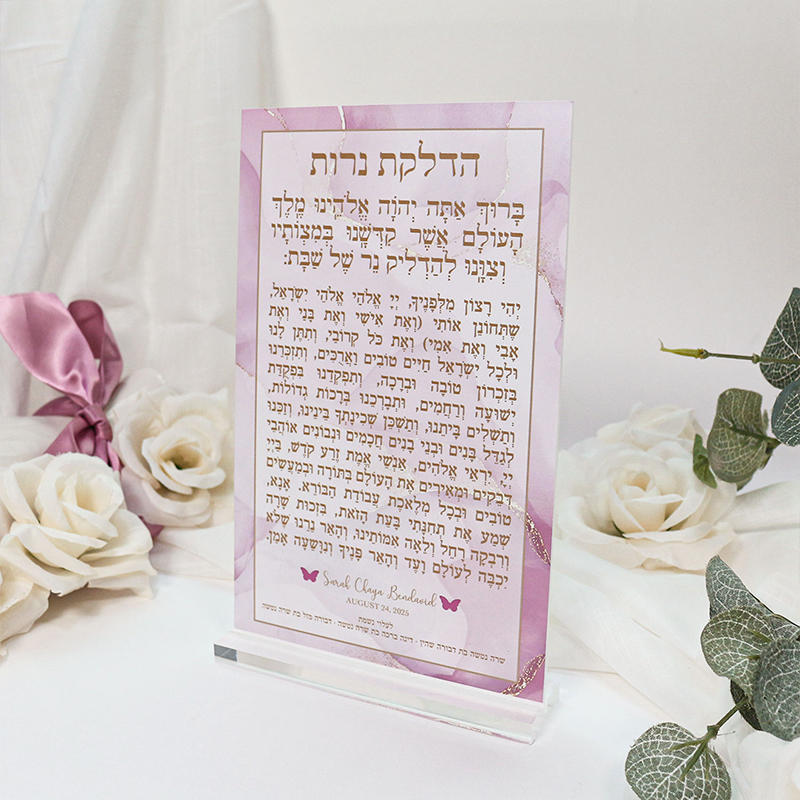 הדלקת נרות
בָּרוּךְ אַתָּה יְהֹוָה אֱלֹהֵינוּ מֶלֶךְ
הָעוֹלָם אֲשֶׁר קִדְּשָׁנוּ בְּמִצְוֹתָיו
וְצִוָּנוּ לְהַדְלִיק נֵר שֶׁל שַׁבָּת:
יְהִי רָצוֹן מִלְּפָנֶיךָ, יְיָ אֱלֹהַי אֱלֹהֵי יִשְׂרָאֵל,
שֶׁתְּחוֹנֵן אוֹתִי (וְאֶת אִישִׁי וְאֶת בָּנַי וְאֶת
אָבִי וְאֶת אִמִּי) וְאֶת כֹּל קְרוֹבַי, וְתִתֶּן לָנוּ
וּלְכָל יִשְׂרָאֵל חַיִּים טוֹבִים וַאֲרֻכִּים, וְתִזְכְּרֵנוּ
בְּזִכְרוֹן טוֹבָה וּבְרָכָה, וְתִפְקְדֵנוּ בִּפְקֻדַּת
יְשׁוּעָה וְרַחֲמִים, וּתְבָרְכֵנוּ בְּרָכוֹת גְּדוֹלוֹת,
וְתַשְׁלִים בָּיתֵנוּ, וְתַשְׁכֵּן שְׁכִינָתְךָ בֵּינֵינוּ, וְזַכֵּנוּ
לְגַדֵּל בָּנִים וּבְנֵי בָנִים חֲכָמִים וּנְבוֹנִים אוֹהֲבֵי
יְיָ, יִרְאֵי אֱלֹהִים, אַנְשֵׁי אֱמֶת זֶרַע קֹדֶשׁ, בַּייָ
דְּבֵקִים וּמְאִירִים אֶת הָעוֹלָם בַּתּוֹרָה וּבְמַעֲשִׂים
טוֹבִים וּבְכָל מְלֶאכֶת עֲבוֹדַת הַבּוֹרֵא. אָנָא,
שְׁמַע אֶת תְּחִנָּתִי בָּעֵת הַזֹּאת, בִּזְכוּת שָׂרָה
וְרִבְקָה רָחֵל וְלֵאָה אִמּוֹתֵינוּ, וְהָאֵר נֵרֵנוּ שֶׁלֹּא
יִכְבֶּה לְעוֹלָם וָעֶד וְהָאֵר פָּנֶיךָ וְנִוָּשֵׁעָה אָמֵן.
Sarah Chaya Bendavid
AUGUST 24, 2025
לעלוי נשמת
שרה נטשה בת דבורה שהין · דינה ברכה בת שרה נטשה · דבורה מזל בת שרה נטשה